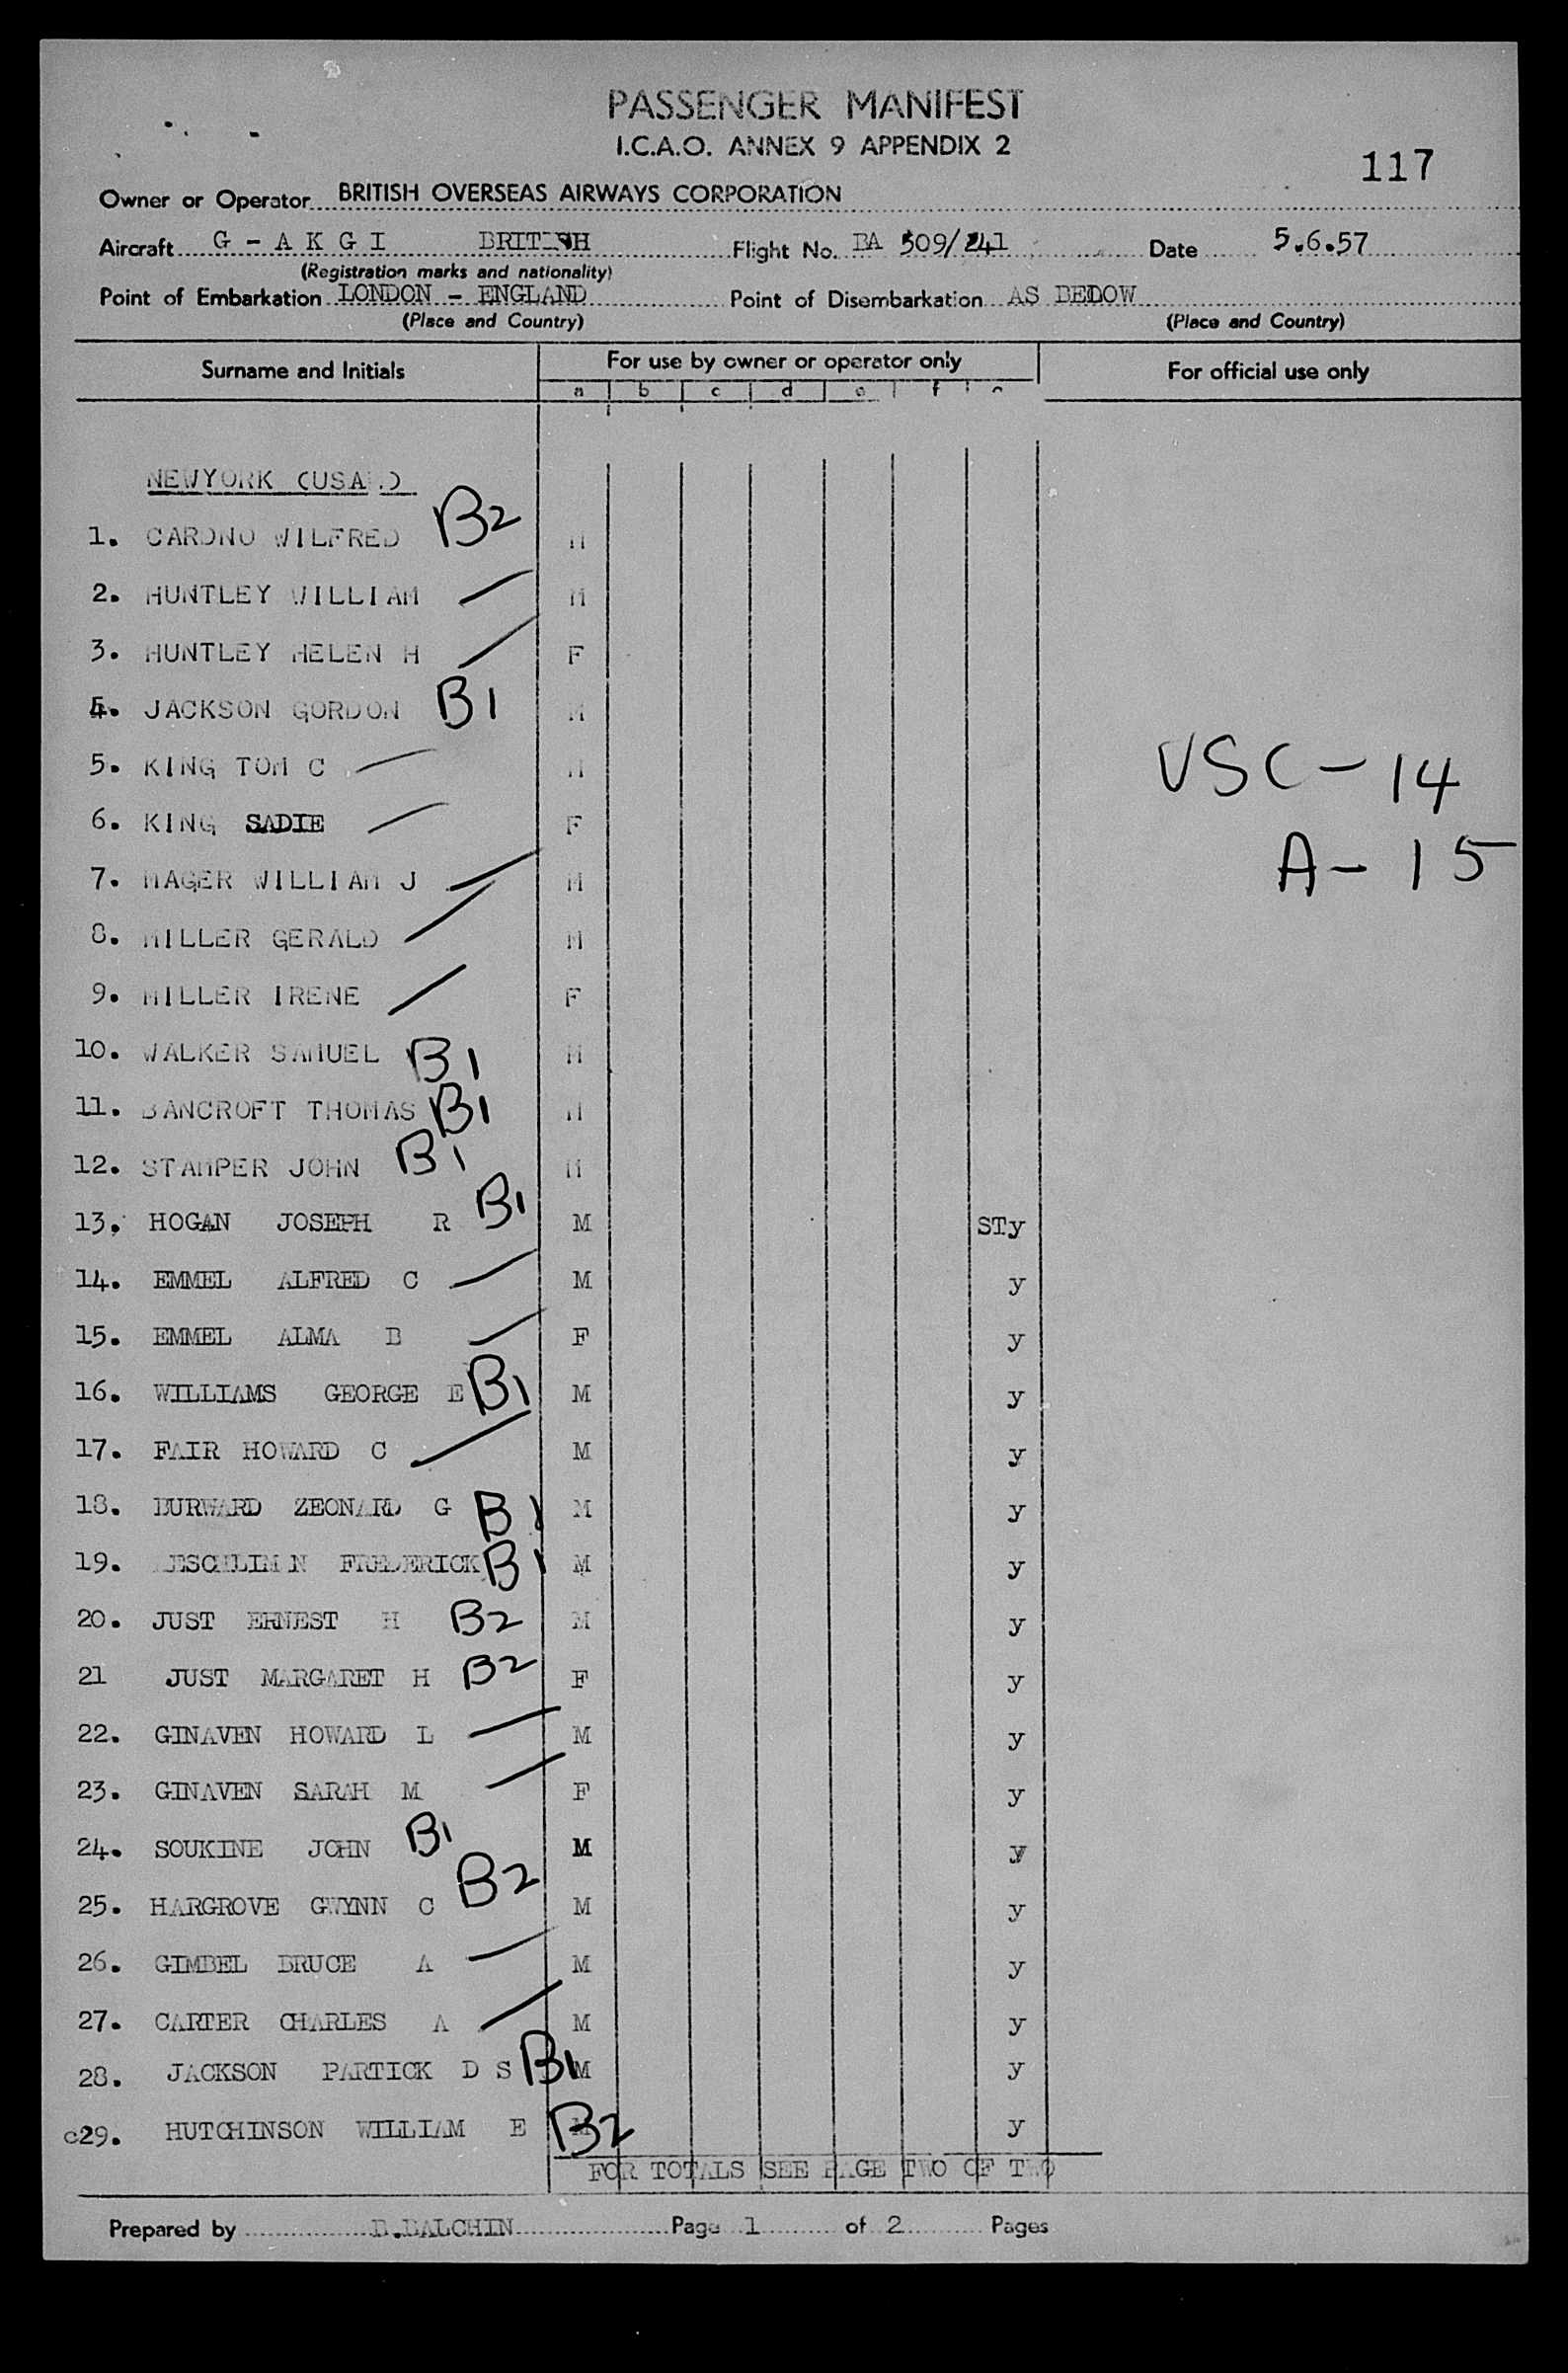 PASSENGER MANIFEST
I.C.A.O. ANNEX 9 APPENDIX 2
117
Owner or Operator BRITISH OVERSEAS AIRWAYS CORPORATION
Aircraft G - A K G I BRITISH Flight No. BA 509/241 Date 5.6.57
(Registration marks and nationality)
Point of Embarkation LONDON - ENGLAND Point of Disembarkation AS BELOW
(Place and Country) (Place and Country)
Surname and Initials For use by owner or operator only For official use only
a b c d e f
NEWYORK (USA.)
1. CARDNO WILFRED B2 M
2. HUNTLEY WILLIAM M
3. HUNTLEY HELEN H F
4. JACKSON GORDON B1 M
5. KING TOM C M
VSC - 14
6. KING SADIE F
7. MAGER WILLIAM J M
A - 15
8. MILLER GERALD M
9. MILLER IRENE F
10. WALKER SAMUEL B1 M
11. BANCROFT THOMAS B1 M
12. STAMPER JOHN B1 M
13. HOGAN JOSEPH R B1 M STy
14. EMMEL ALFRED C M y
15. EMMEL ALMA B F y
16. WILLIAMS GEORGE E B1 M y
17. FAIR HOWARD C M y
18. BURWARD ZEONARD G B1 M y
19. FREDERICK B1 M y
20. JUST ERNEST H B2 M y
21 JUST MARGARET H B2 F y
22. GINAVEN HOWARD L M y
23. GINAVEN SARAH M F y
24. SOUKINE JOHN B1 M y
25. HARGROVE GWYNN C B2 M y
26. GIMBEL BRUCE A M y
27. CARTER CHARLES A M y
28. JACKSON PARTICK D S B1 M y
c29. HUTCHINSON WILLIAM E B2 M y
FOR TOTALS SEE PAGE TWO OF TWO
Prepared by D.BALCHIN Page 1 of 2 Pages